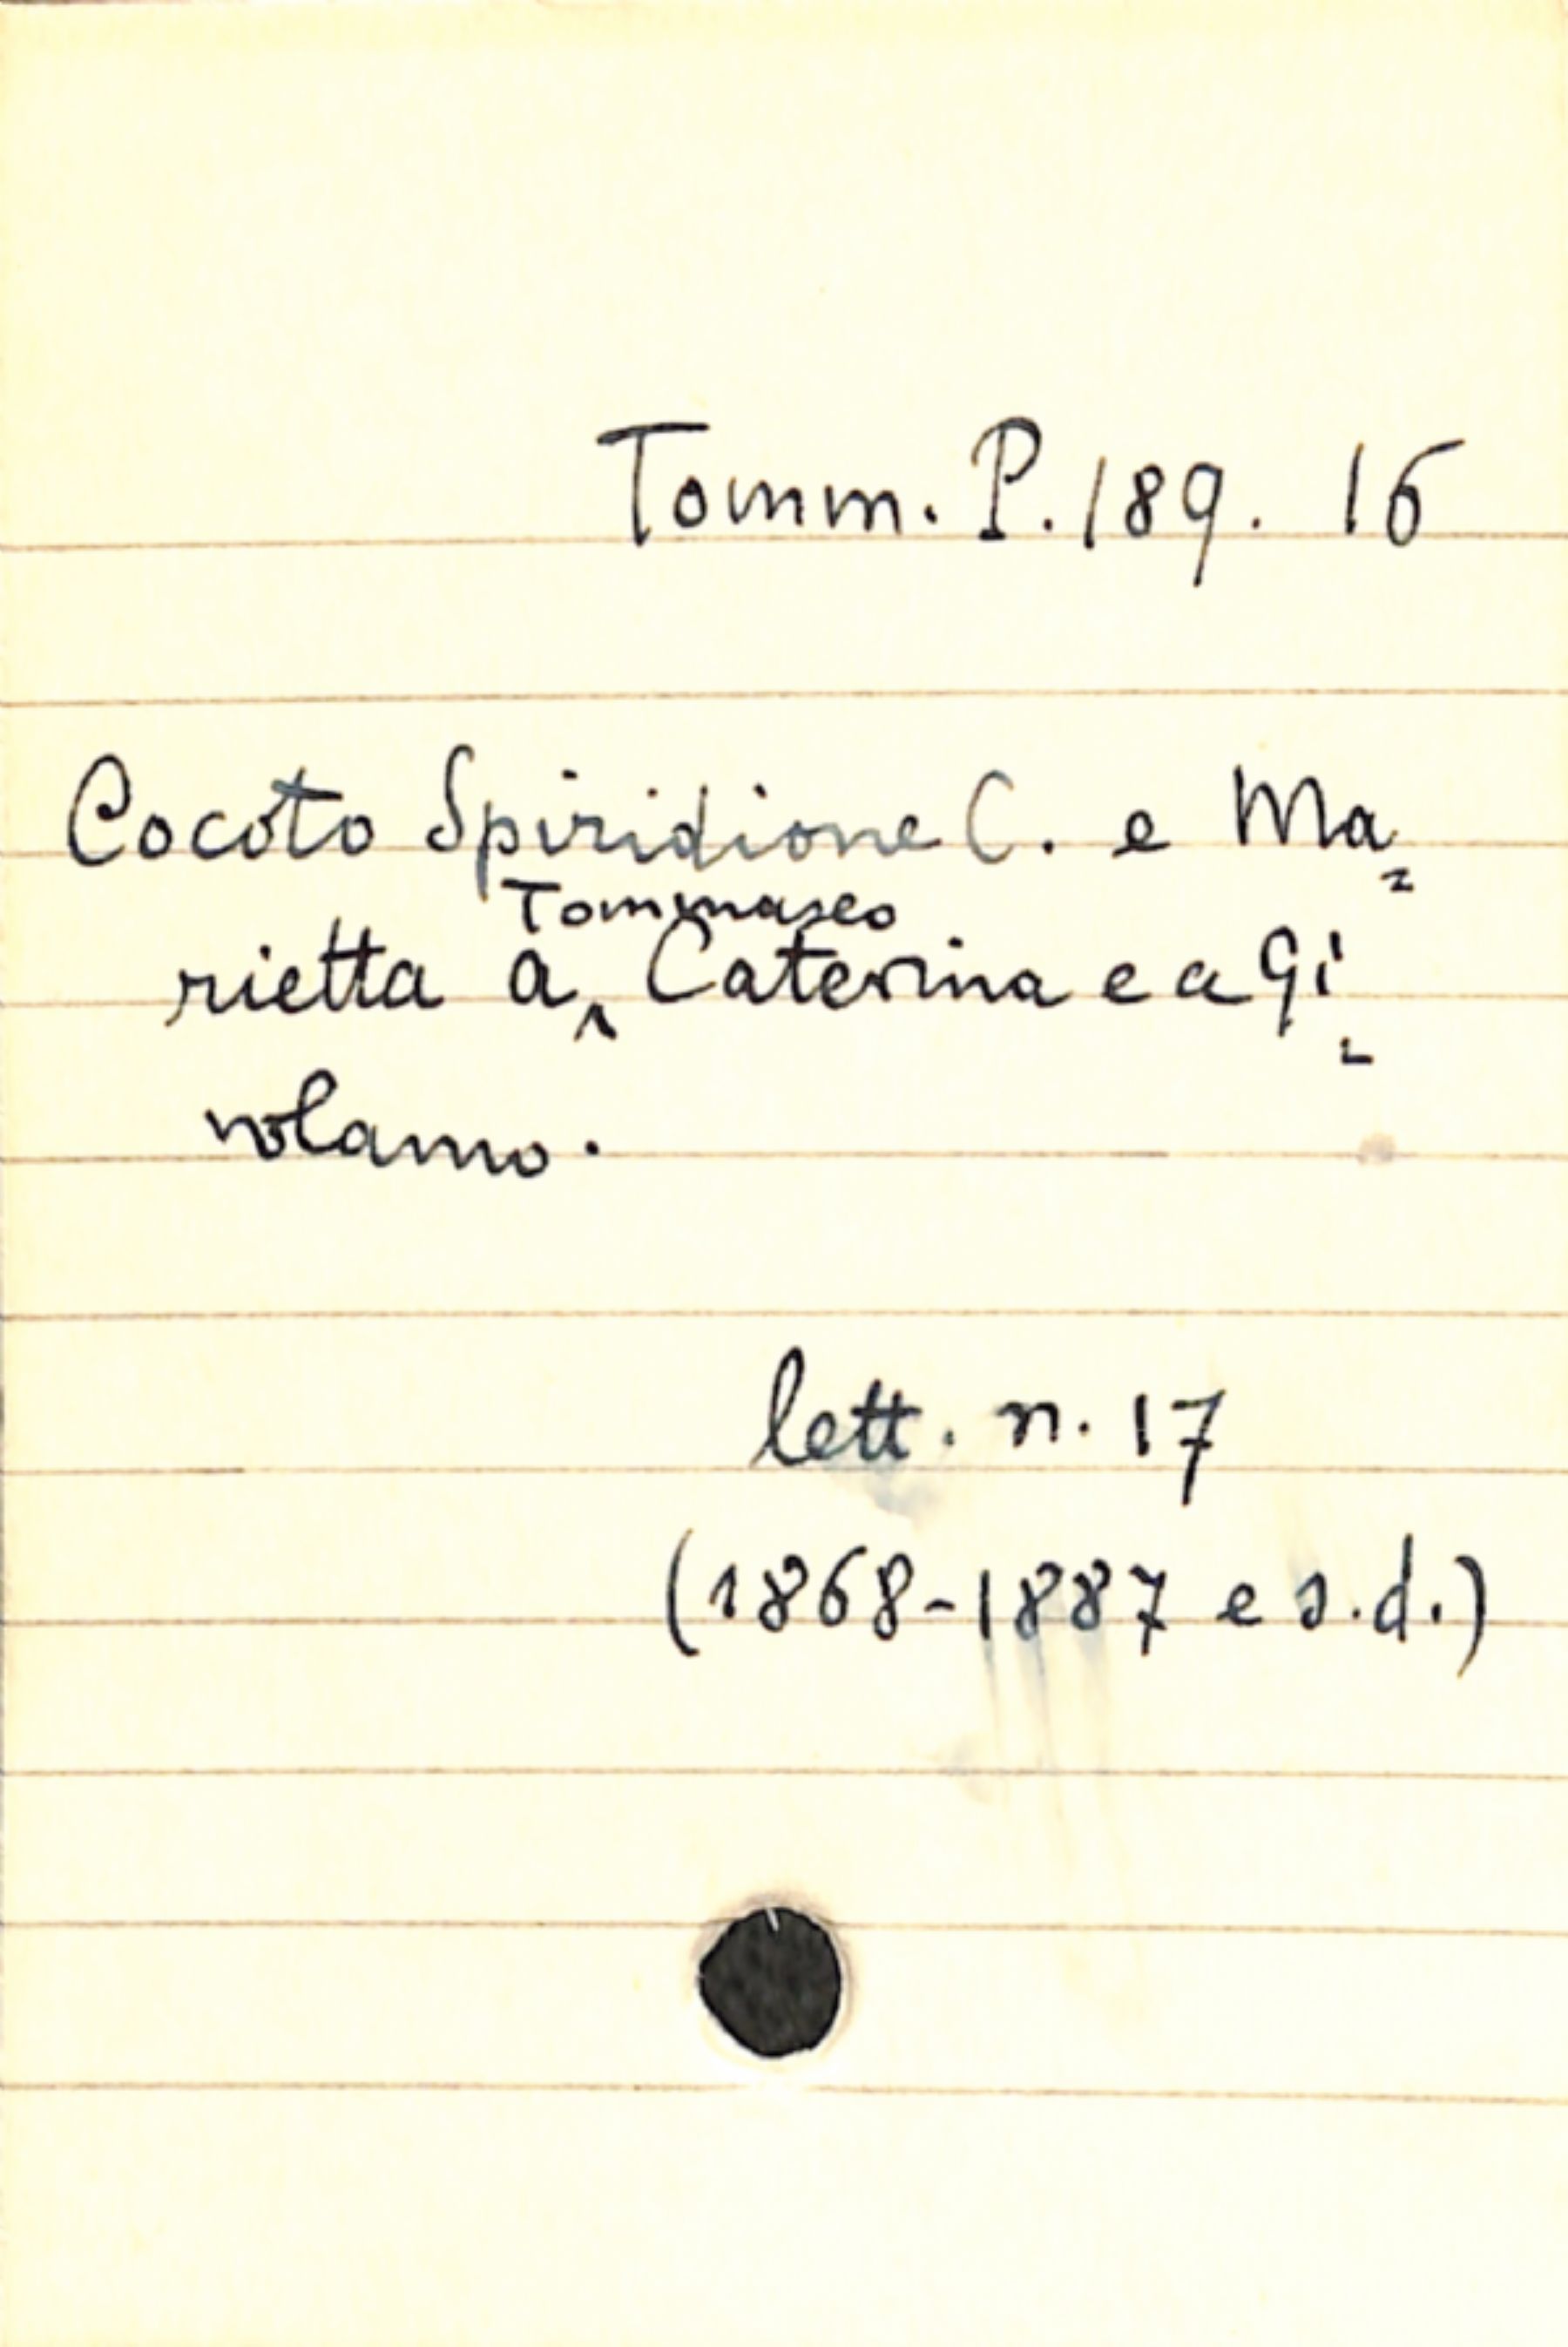 Tomm. P. 189. 16
Cocoto Spiridione C. e Ma=
rietta a Tommaseo Caterina e a Gi-
rolamo.
lett. n. 17
(1868-1887 e s.d.)